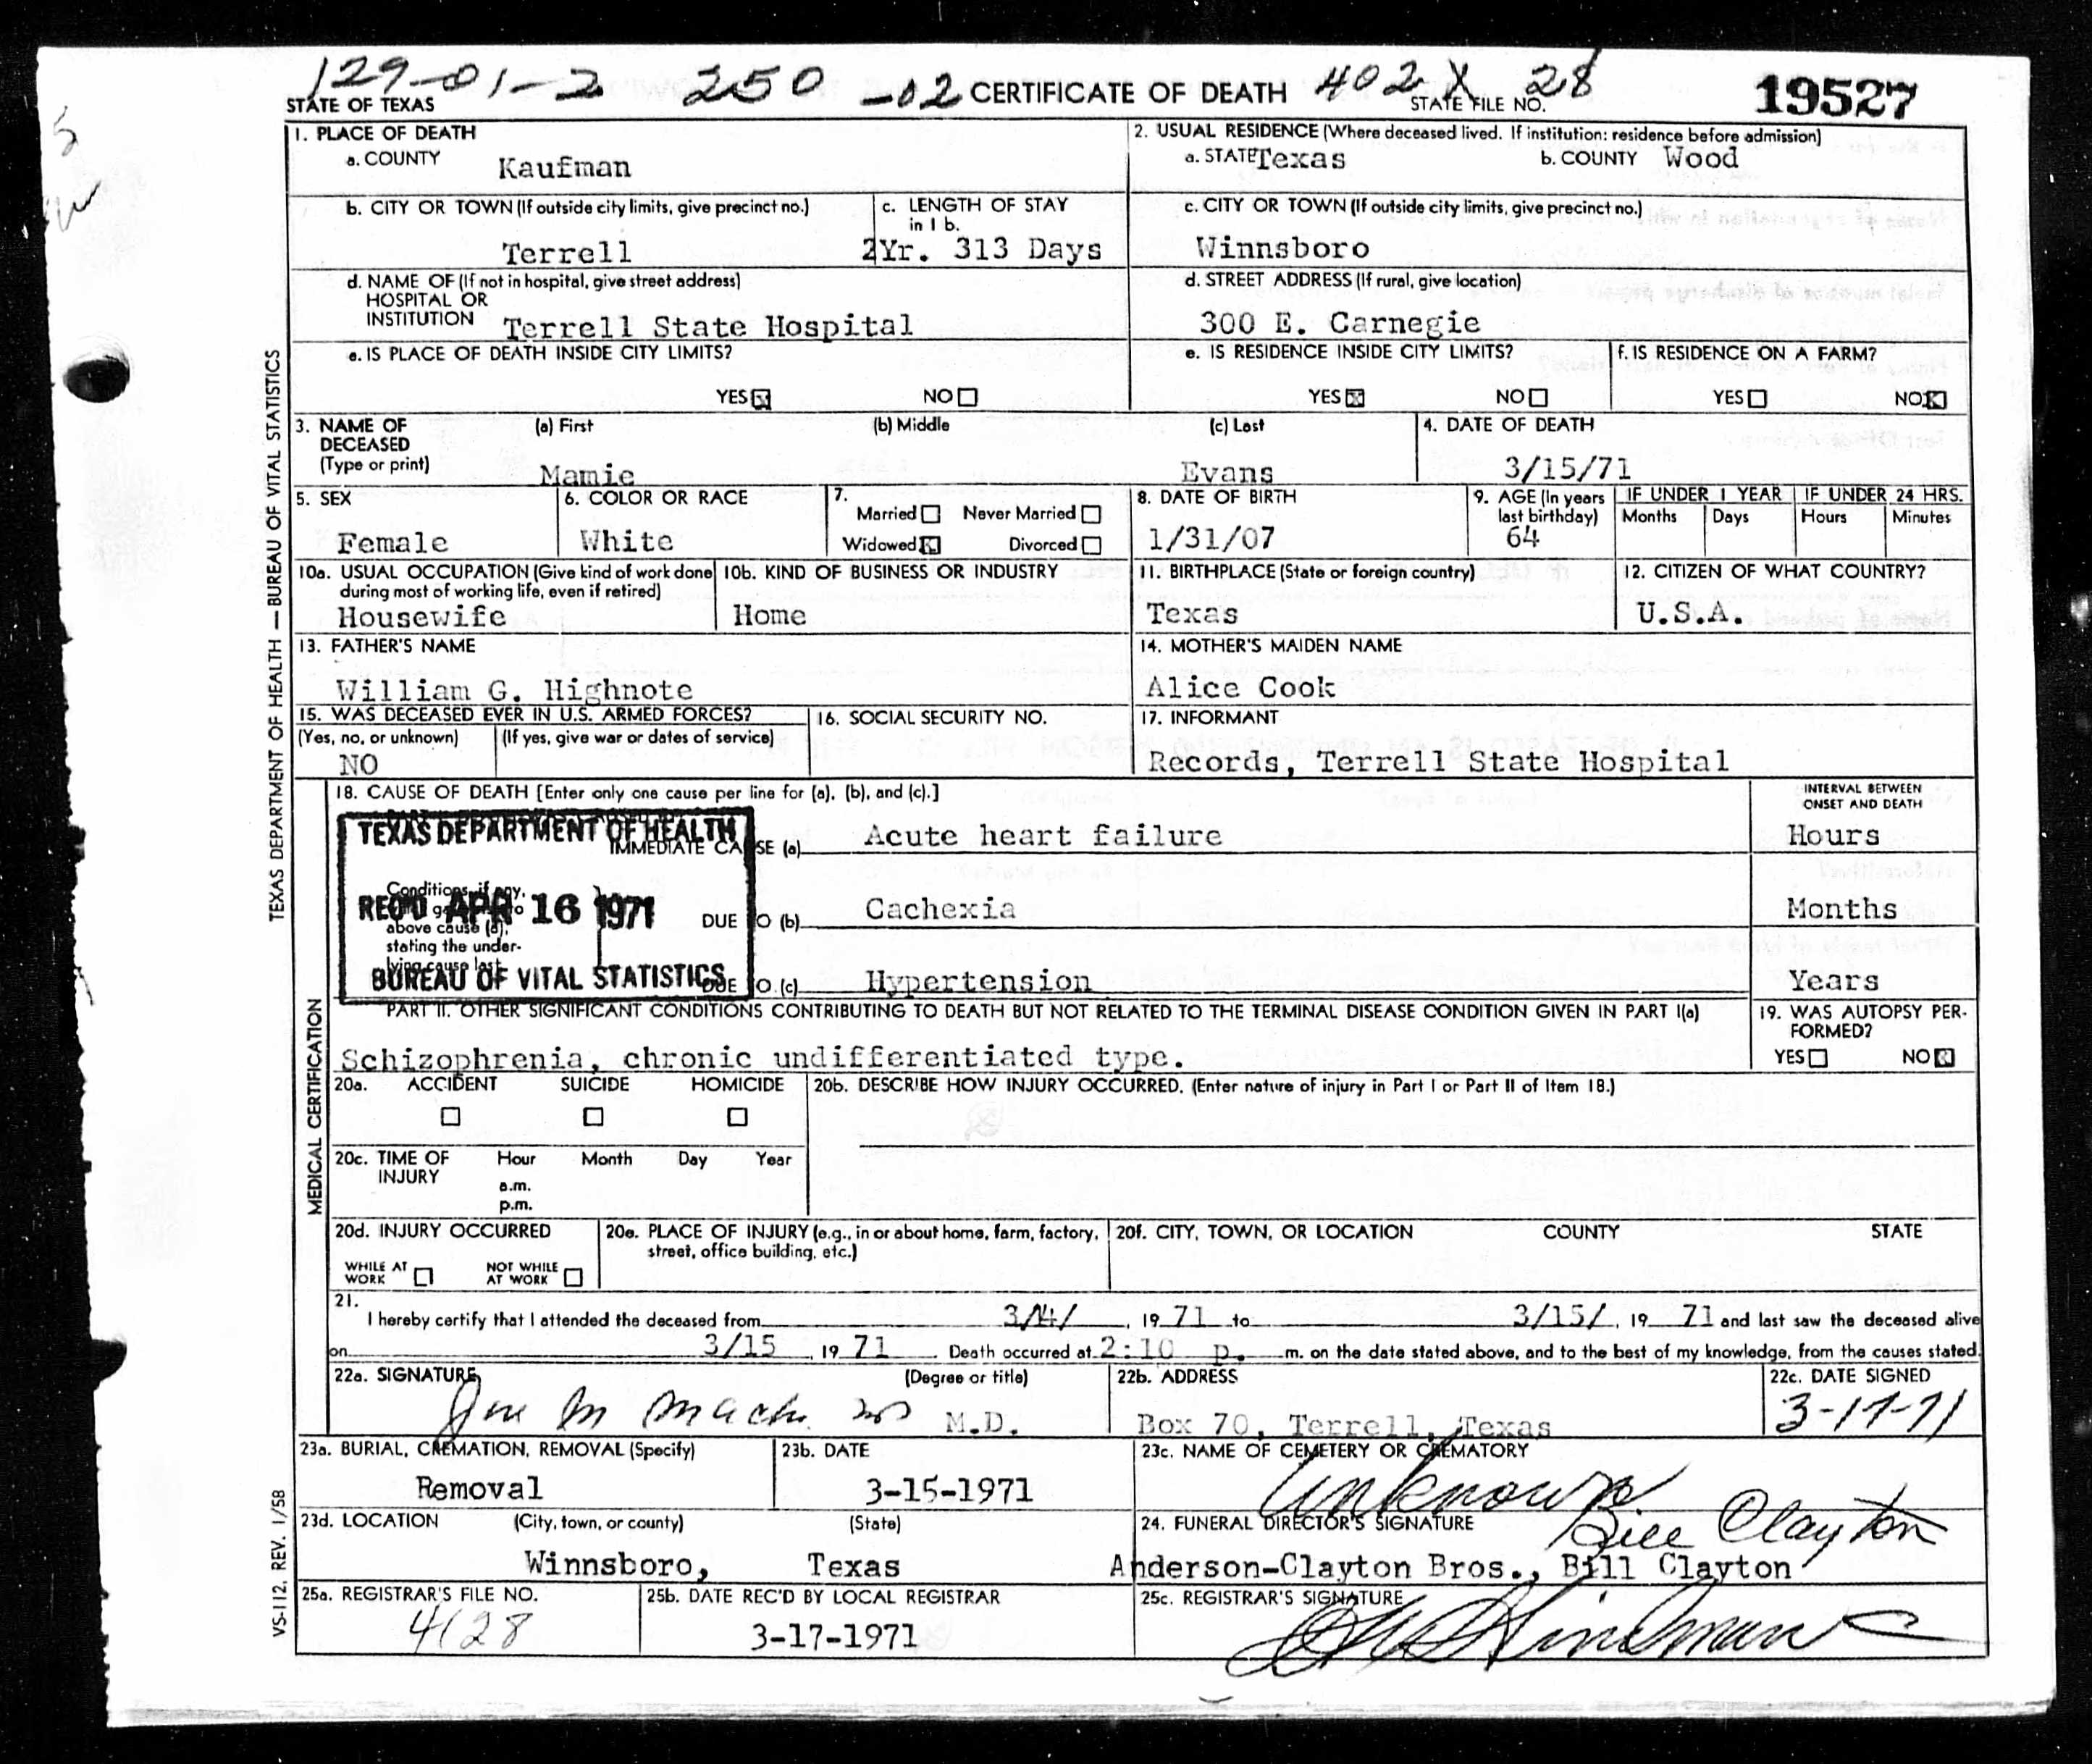 129-01-2 250 -02 CERTIFICATE OF DEATH 402X 28
STATE OF TEXAS STATE FILE NO. 19527
1. PLACE OF DEATH
a. COUNTY Kaufman
2. USUAL RESIDENCE (Where deceased lived. If institution: residence before admission)
a. STATE Texas b. COUNTY Wood
b. CITY OR TOWN (If outside city limits, give precinct no.)
Terrell
c. LENGTH OF STAY in 1 b.
2Yr. 313 Days
c. CITY OR TOWN (If outside city limits, give precinct no.)
Winnsboro
d. NAME OF (If not in hospital, give street address)
HOSPITAL OR
INSTITUTION Terrell State Hospital
d. STREET ADDRESS (If rural, give location)
300 E. Carnegie
e. IS PLACE OF DEATH INSIDE CITY LIMITS?
YES X NO
e. IS RESIDENCE INSIDE CITY LIMITS?
YES X NO
f. IS RESIDENCE ON A FARM?
YES NO X
3. NAME OF DECEASED (Type or print)
(a) First (b) Middle (c) Last
Mamie Evans
4. DATE OF DEATH
3/15/71
5. SEX
Female
6. COLOR OR RACE
White
7.
Married Never Married
Widowed X Divorced
8. DATE OF BIRTH
1/31/07
9. AGE (In years last birthday)
64
IF UNDER 1 YEAR IF UNDER 24 HRS.
Months Days Hours Minutes
10a. USUAL OCCUPATION (Give kind of work done during most of working life, even if retired)
Housewife
10b. KIND OF BUSINESS OR INDUSTRY
Home
11. BIRTHPLACE (State or foreign country)
Texas
12. CITIZEN OF WHAT COUNTRY?
U.S.A.
13. FATHER'S NAME
William G. Highnote
14. MOTHER'S MAIDEN NAME
Alice Cook
15. WAS DECEASED EVER IN U.S. ARMED FORCES?
(Yes, no, or unknown) (If yes, give war or dates of service)
NO
16. SOCIAL SECURITY NO.
17. INFORMANT
Records, Terrell State Hospital
18. CAUSE OF DEATH [Enter only one cause per line for (a), (b), and (c).]
INTERVAL BETWEEN
ONSET AND DEATH
TEXAS DEPARTMENT OF HEALTH
REC'D APR 16 1971
BUREAU OF VITAL STATISTICS
IMMEDIATE CAUSE (a) Acute heart failure Hours
Conditions, if any,
above cause (a),
stating the under-
lying cause last.
DUE TO (b) Cachexia Months
DUE TO (c) Hypertension Years
PART II. OTHER SIGNIFICANT CONDITIONS CONTRIBUTING TO DEATH BUT NOT RELATED TO THE TERMINAL DISEASE CONDITION GIVEN IN PART I(a)
Schizophrenia, chronic undifferentiated type.
19. WAS AUTOPSY PER-
FORMED?
YES NO X
20a. ACCIDENT SUICIDE HOMICIDE
20b. DESCRIBE HOW INJURY OCCURRED. (Enter nature of injury in Part I or Part II of Item 18.)
20c. TIME OF INJURY Hour Month Day Year
a.m.
p.m.
20d. INJURY OCCURRED
WHILE AT WORK NOT WHILE AT WORK
20e. PLACE OF INJURY (e.g., in or about home, farm, factory, street, office building, etc.)
20f. CITY, TOWN, OR LOCATION COUNTY STATE
21.
I hereby certify that I attended the deceased from 3/4/, 19 71 to 3/15/, 19 71 and last saw the deceased alive
on 3/15, 19 71. Death occurred at 2:10 p. m. on the date stated above, and to the best of my knowledge, from the causes stated.
22a. SIGNATURE (Degree or title)
M.D.
22b. ADDRESS
Box 70, Terrell, Texas
22c. DATE SIGNED
3-17-71
23a. BURIAL, CREMATION, REMOVAL (Specify)
Removal
23b. DATE
3-15-1971
23c. NAME OF CEMETERY OR CREMATORY
Unknown
23d. LOCATION (City, town, or county) (State)
Winnsboro, Texas
24. FUNERAL DIRECTOR'S SIGNATURE
Bill Clayton
Anderson-Clayton Bros., Bill Clayton
25a. REGISTRAR'S FILE NO.
4128
25b. DATE REC'D BY LOCAL REGISTRAR
3-17-1971
25c. REGISTRAR'S SIGNATURE
TEXAS DEPARTMENT OF HEALTH — BUREAU OF VITAL STATISTICS
MEDICAL CERTIFICATION
VS-112, REV. 1/58